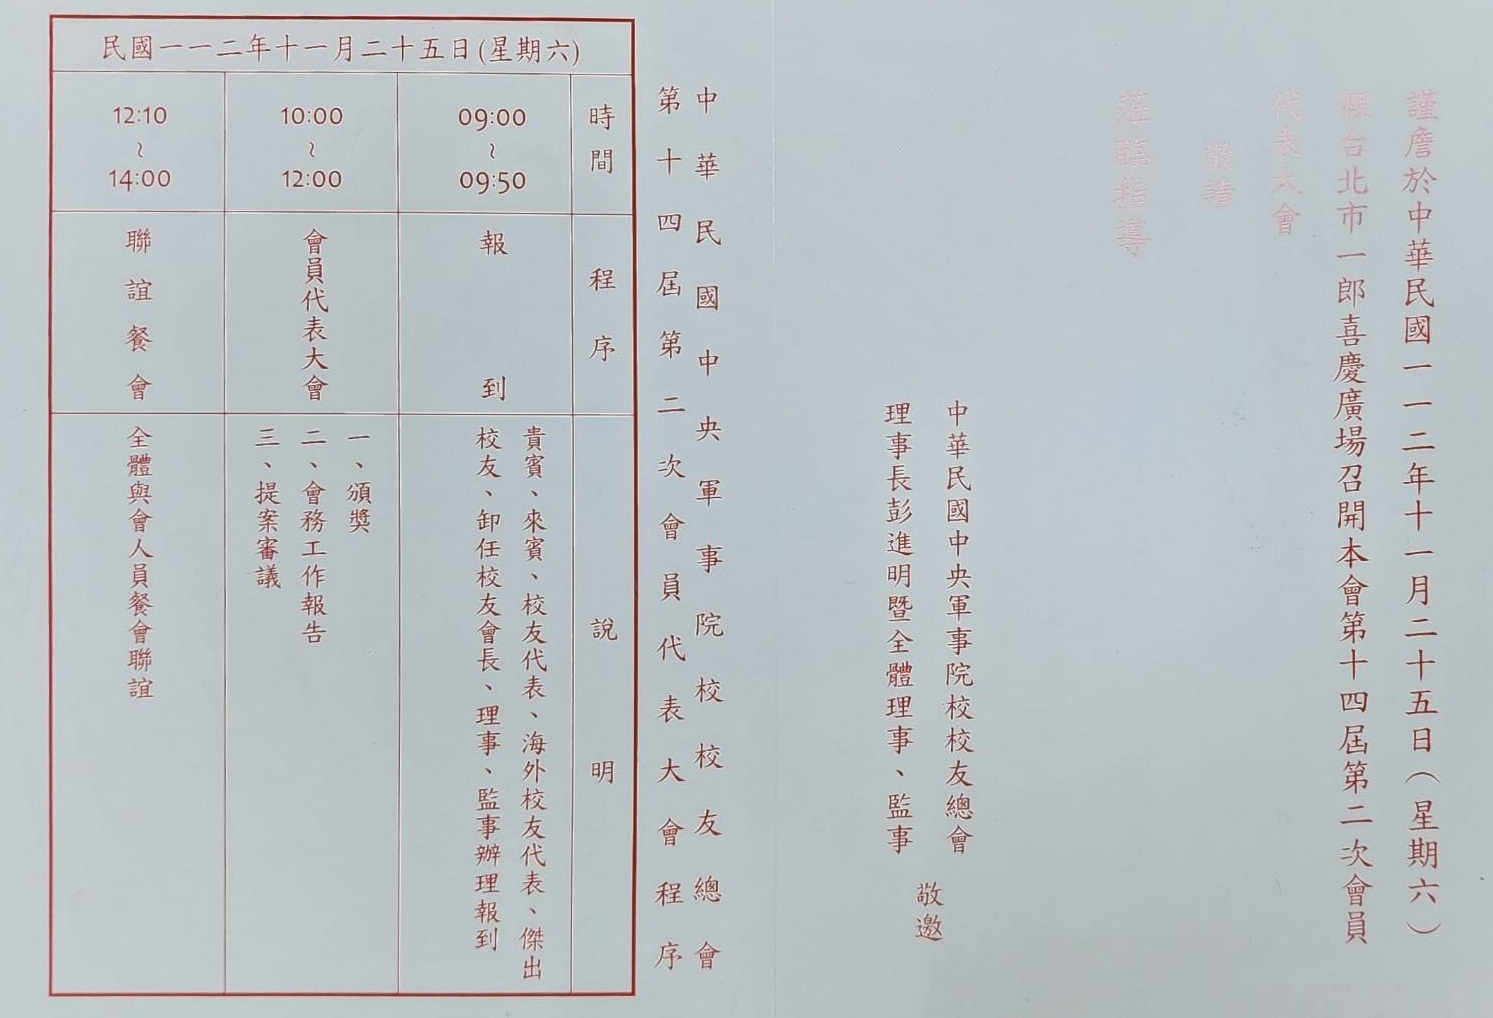 謹詹於中華民國一一二年十一月二十五日（星期六）
假台北市一郎喜慶廣場召開本會第十四屆第二次會員
代表大會
敬請
蒞臨指導
中華民國中央軍事院校校友總會
理事長彭進明暨全體理事、監事
敬邀
中華民國中央軍事院校校友總會
第十四屆第二次會員代表大會程序
民國一一二年十一月二十五日(星期六)
時間
程序
說明
09:00
~
09:50
報到
貴賓、來賓、校友代表、海外校友代表、傑出
校友、卸任校友會長、理事、監事辦理報到
10:00
~
12:00
會員代表大會
一、頒獎
二、會務工作報告
三、提案審議
12:10
~
14:00
聯誼餐會
全體與會人員餐會聯誼